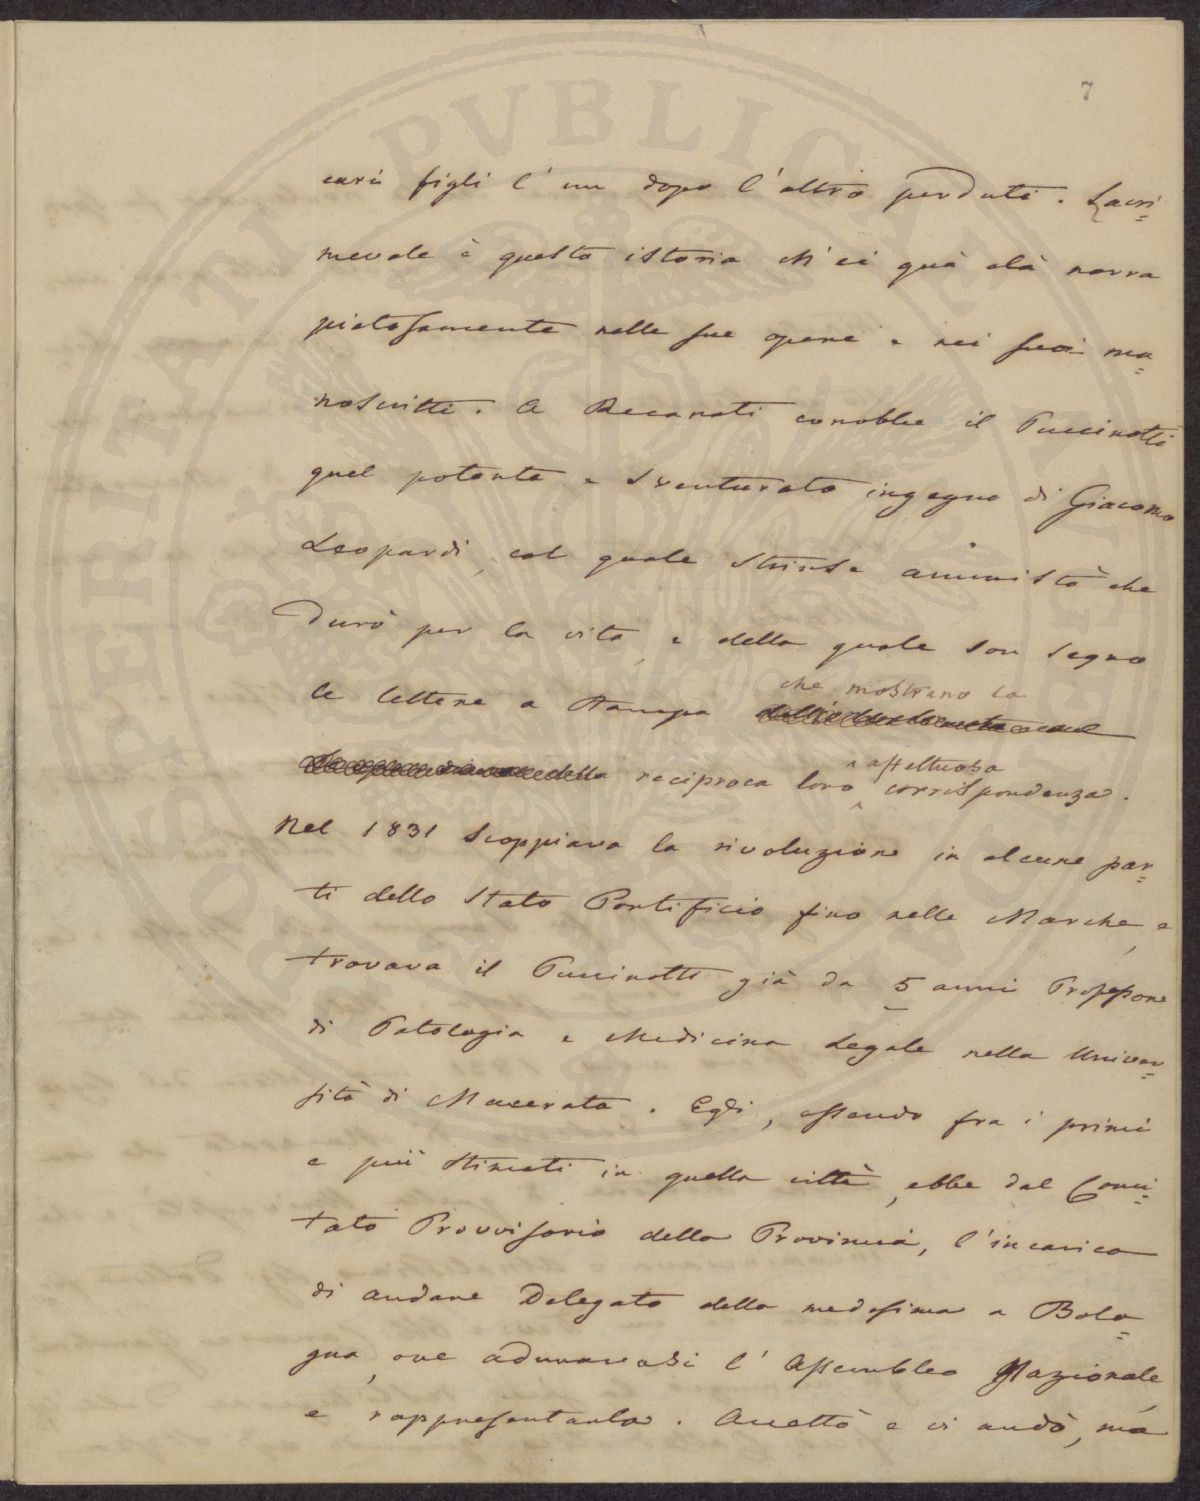 7
cari figli l'un dopo l'altro perduti. Lacri=
mevole è questa istoria ch'ei quà elà narra
pietosamente nelle sue opere e nei suoi ma=
noscritti. A Recanati conobbe il Puccinotti
quel potente e sventurato ingegno di Giacomo
Leopardi, col quale strinse amistà che
durò per la vita, e della quale son segno
che mostrano la
le lettere a stampa
e affettuosa
della reciproca loro corrispondenza.
Nel 1831 scoppiava la rivoluzione in alcune par=
ti dello Stato Pontificio fino nelle Marche, e
trovava il Puccinotti già da 5 anni Professore
di Patologia e Medicina Legale nella Univer=
sità di Macerata. Egli, essendo fra i primi
e più stimati in quella città, ebbe dal Comi=
tato Provvisorio della Provincia, l'incarico
di andare Delegato della medesima a Bolo=
gna, ove adunavasi l'Assemblea Nazionale,
e rappresentarla. Accettò e vi andò, ma
PUBLICAE